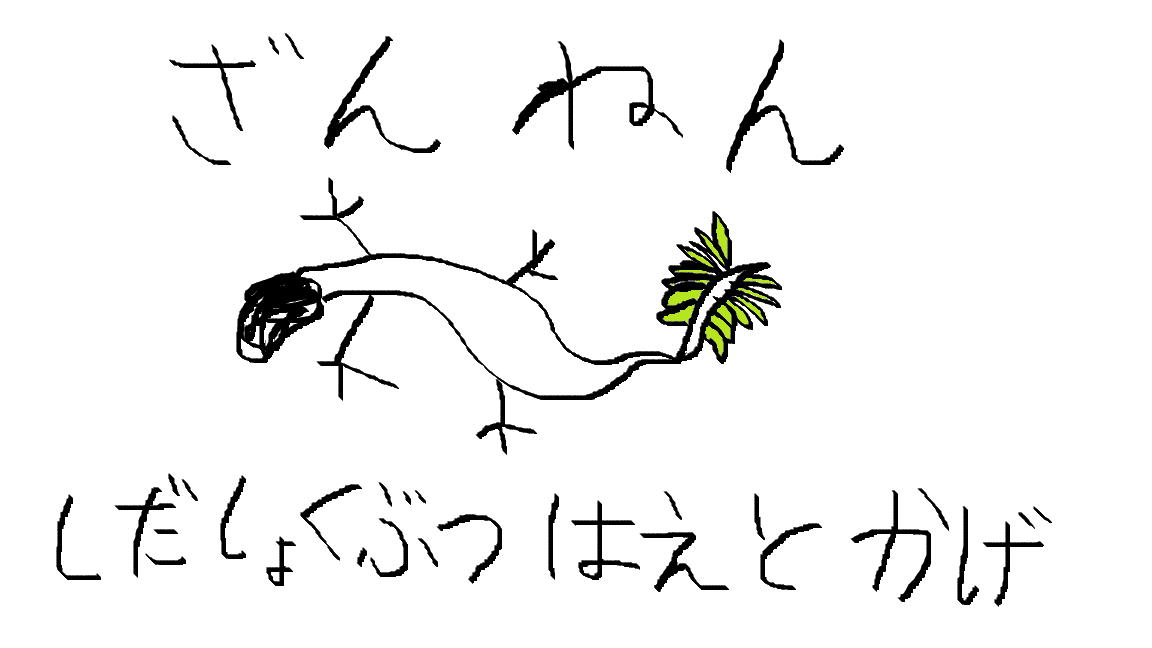 ざんねん
しだしょくぶつはえとかげ